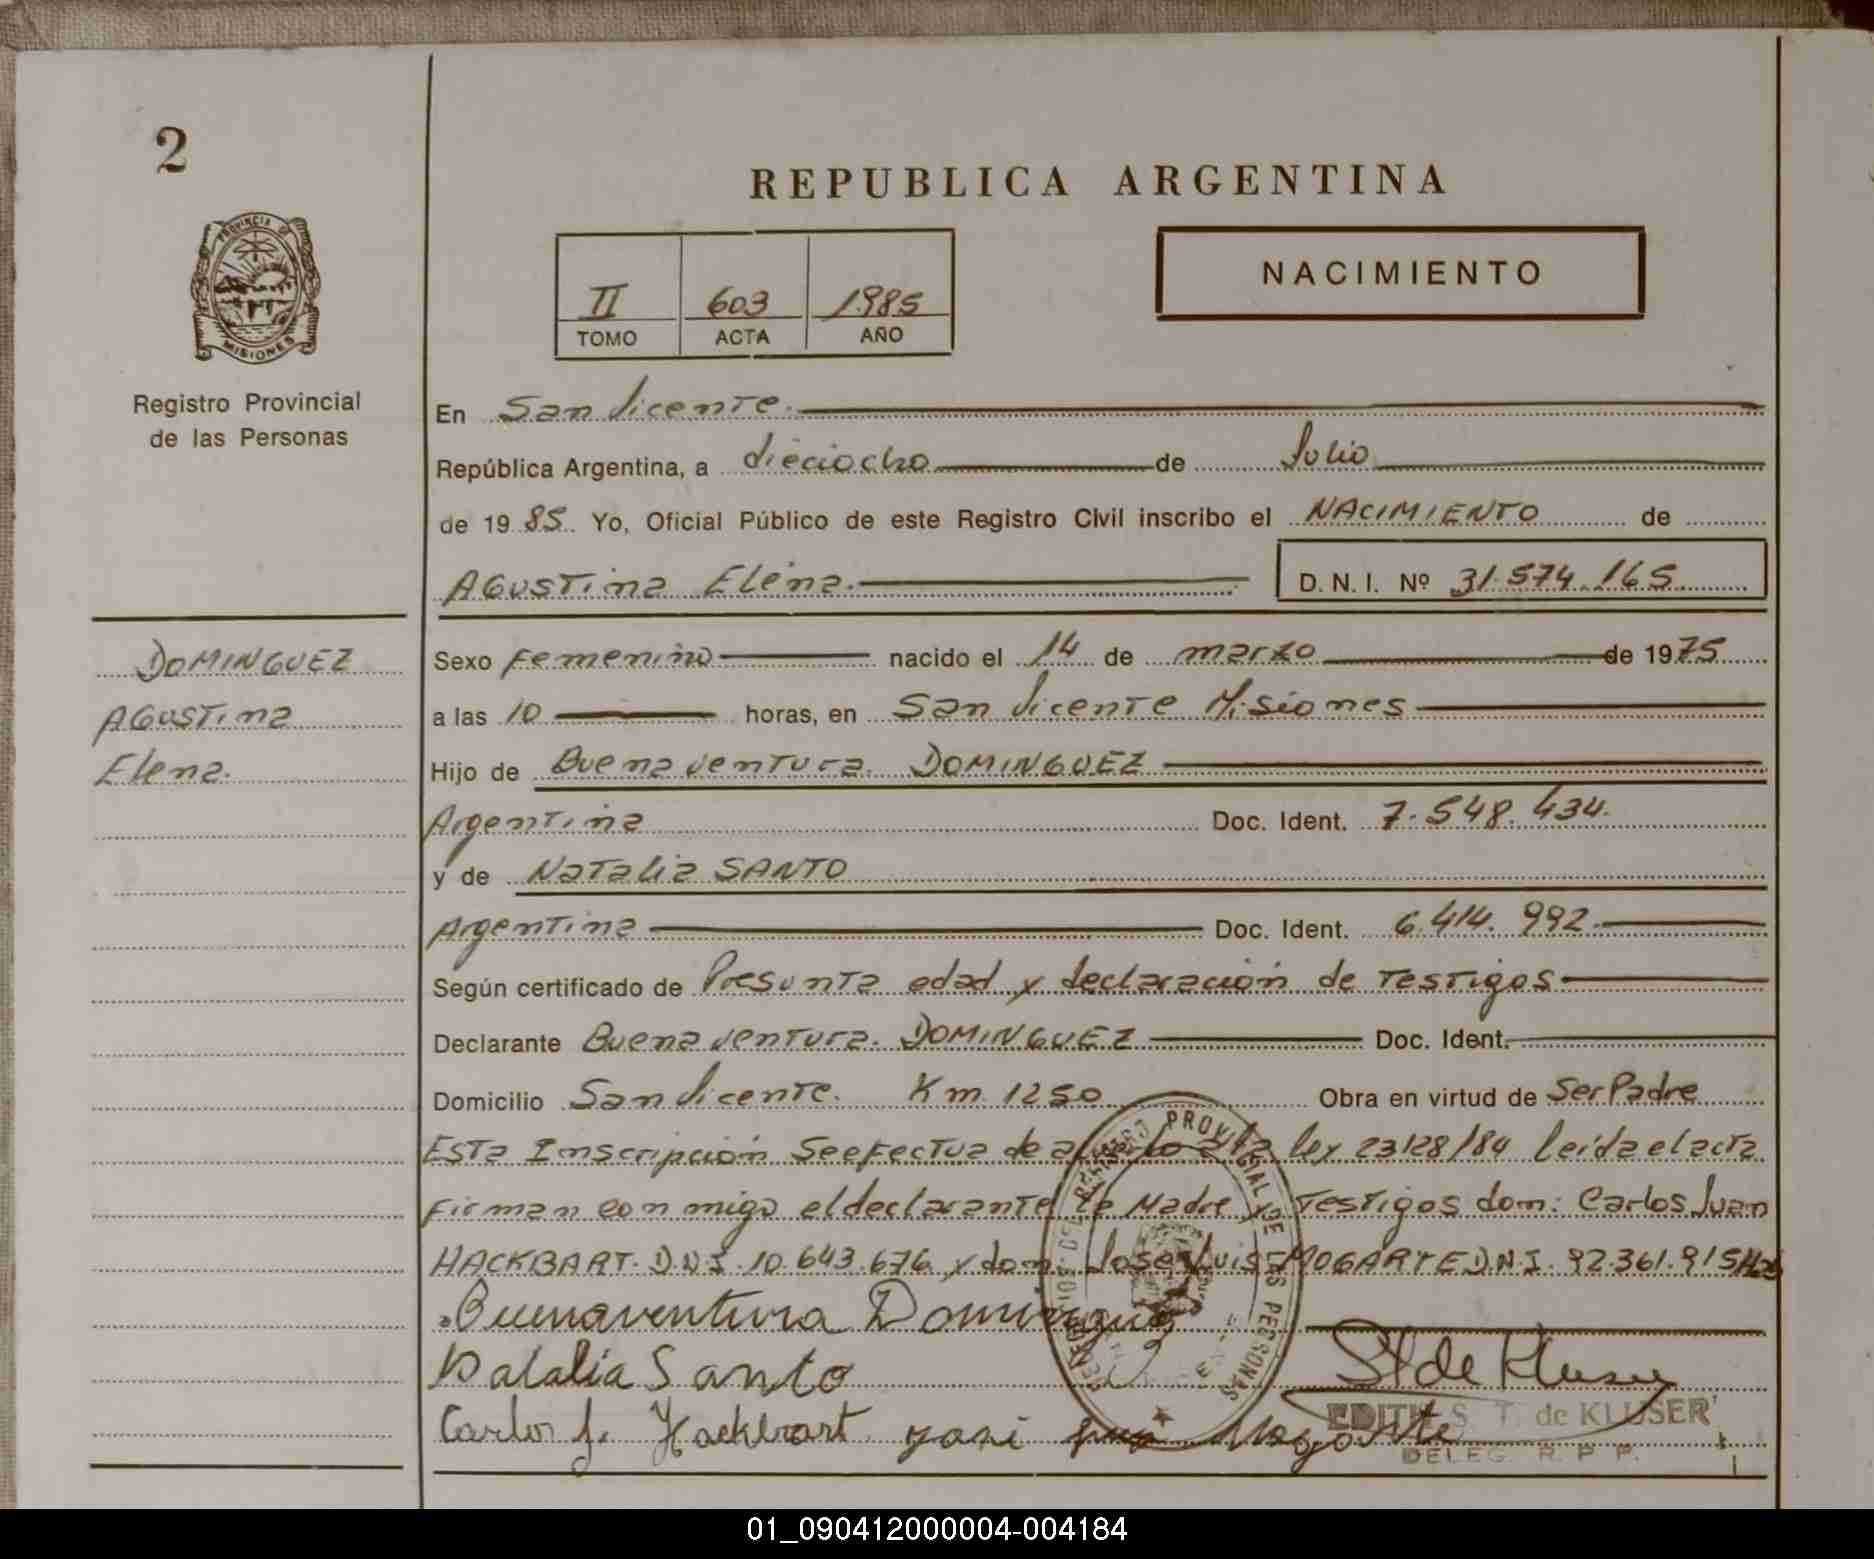 2
REPUBLICA ARGENTINA
PROVINCIA DE
MISIONES
II 603 1985
TOMO ACTA AÑO
NACIMIENTO
Registro Provincial
de las Personas
En San Vicente.
República Argentina, a dieciocho de Julio
de 19 85. Yo, Oficial Público de este Registro Civil inscribo el NACIMIENTO de
AGUSTina Elena. D. N. I. Nº 31.574.165
DOMINGUEZ
AGUSTina
Elena.
Sexo Femenino nacido el 14 de marzo de 1975
a las 10 horas, en San Vicente Misiones
Hijo de Buenaventura. DOMINGUEZ
Argentina Doc. Ident. 7.548.434.
y de Natalia SANTO
Argentina Doc. Ident. 6.414.992.
Según certificado de Presunta edad y declaración de Testigos
Declarante Buenaventura. DOMINGUEZ Doc. Ident.
Domicilio San Vicente. Km 1250 Obra en virtud de Ser Padre
Esta Inscripción Se efectua de acuerdo a la ley 23128/84 leída el acta
Firman conmigo el declarante la Madre y Testigos dom: Carlos Juan
HACKBART. D.N.I. 10.643.676 y dom. Jose Luis MOGARTE D.N.I. 92.361.915
Buenaventura Dominguez
Natalia Santo
Carlos J. Hackbart
EDITH S. T. de KLUSER
DELEG. R. P. P.
01_090412000004-004184